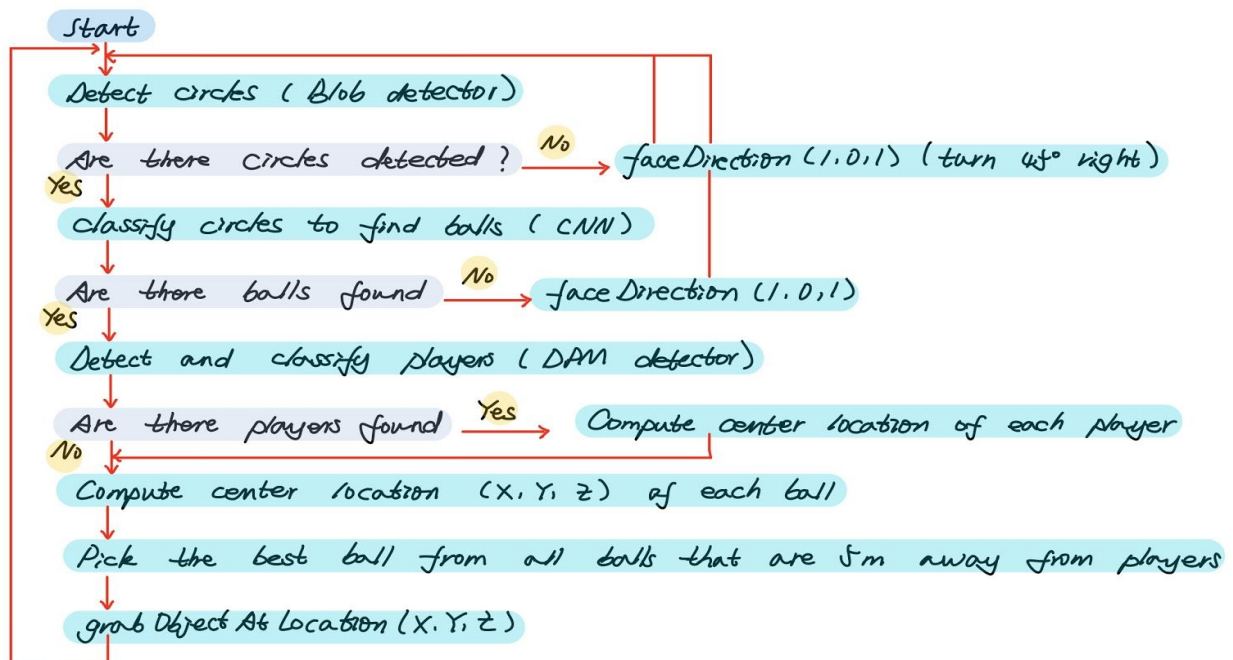 Start
Detect circles (Blob detector)
Are there circles detected?
No
faceDirection (1,0,1) (turn 45° right)
Yes
classify circles to find balls (CNN)
Are there balls found
No
faceDirection (1.0,1)
Yes
Detect and classify players (DPM detector)
Are there players found
Yes
Compute center location of each player
No
Compute center location (X, Y, Z) of each ball
Pick the best ball from all balls that are 5m away from players
grabObjectAtLocation (X. Y, Z)